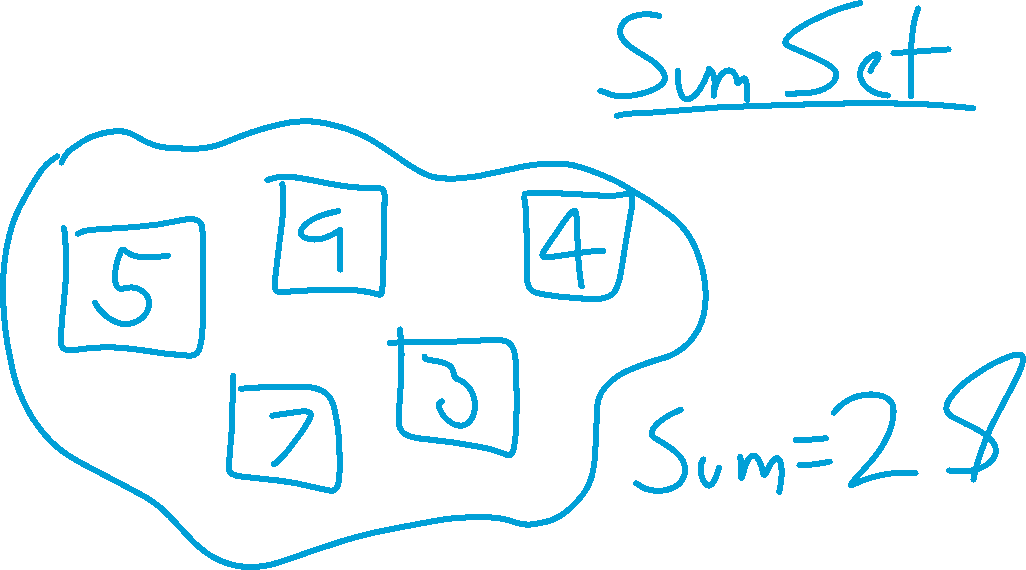 Sum Set
5 9 4
7 3
Sum=28